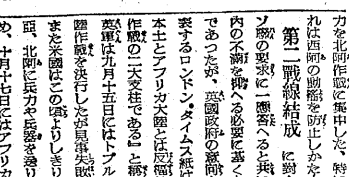 力を北阿作戰に集中した、特
れは西阿の動搖を防止しかた
第二戰線結成 に對
ソ聯の要求に一應答へると共
内の不滿を抑へる必要に基く
であつたが、英國政府の意向
表するロンドン・タイムス紙は
本土とアフリカ大陸とは反樞
作戰の二大支柱である』と稱
英軍は九月十五日にはトブル
陸作戰を決行したが見事失敗
また米國はこの頃よりしきり
亞、北阿に兵力や兵器を送り
め、十月十七日にはアフリカ